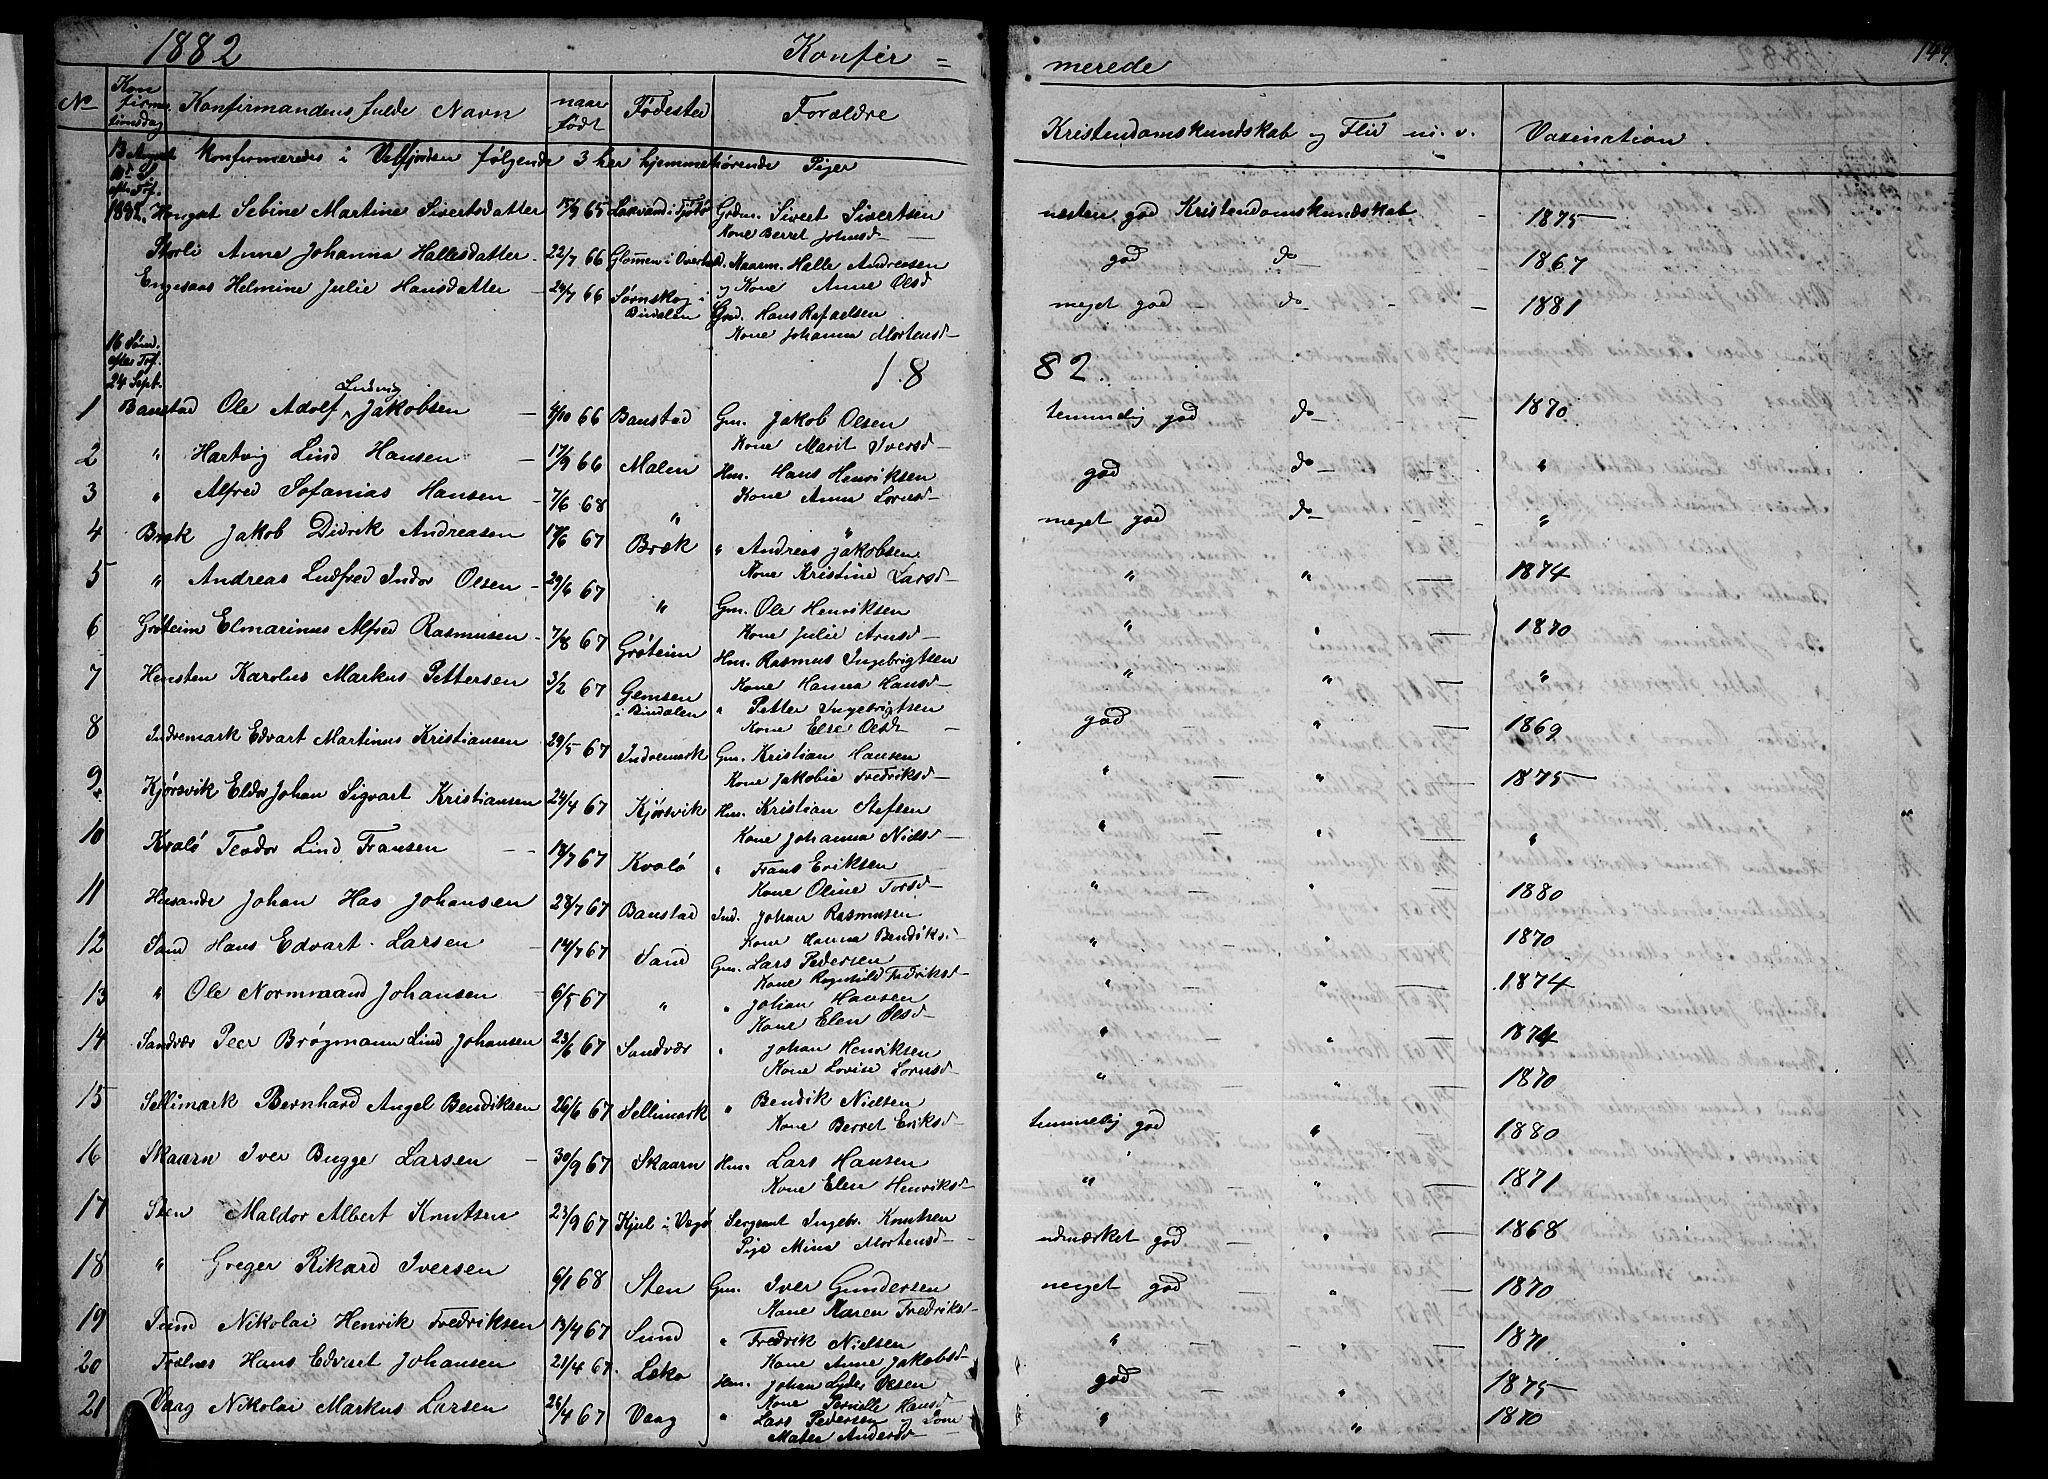 1882 Konfir =
merede 149.
No Konfirmationsdag Konfirmandens fulde Navn naar født Fødested Forældre
Kristendomskundskab og Flid m. v. Vaxination
13 August Konfirmeredes i Velfjorden følgende 3 her hjemmehørende Piger
10de S. eft. Tref. 1882. Hongset Sebine Martine Sivertsdatter 15/9 65 i Tjøtø Grdm. Sivert Sivertsen Kone Berret Johnsd næsten god Kristendomskundskab - 1875
Storli Anne Johanna Hallesdatter 22/7 66 Glømen i Overhal. Maarm. Halle Andreasen og Kone Anne Olsd god do 1867
Engesaas Helmine Julie Hansdatter - 24/7 66 Sørnskog i Bindalen Grd. Hans Rafaelsen Kone Johanna Mortensd- meget god - do - - 1881
16 Sønd. efter Tref. 24 Sept.
18 82.
1 Banstad Ole Adolf Ludvig Jakobsen - 4/10 66 Banstad Gm. Jakob Olsen Kone Marit Iversd temmelig god do - - 1870
2 " Hartvig Lind Hansen - 17/9 66 Malm Hm. Hans Henriksen Kone Anna Lornsd- god do - - "
3 " Alfred Sofanias Hansen - 7/6 68 " " meget god do - - "
4 Bræk Jakob Didrik Andreasen 17/6 67 Bræk " Andreas Jakobsen Kone Kristine Larsd- " " - 1874
5 " Andreas Ludfred Indor Olsen - 29/6 67 " Gm. Ole Henriksen Kone Julie Arnsd- " " - 1870
6 Grøteim Elmarinus Alfred Rasmusen - 7/8 67 Grøteim Hm. Rasmus Ingebrigtsen Kone Hanna Hansd- " " - "
7 Hemsten Karolus Markus Pettersen 3/2 67 Gemsen i Bindalen " Petter Ingebrigtsen Kone Else Olsd - god - " - 1869
8 Indremark Edvart Martinus Kristiansen 29/5 67 Indremark Gm. Kristian Hansen Kone Jakobia Fredriksd- " - " - 1875
9 Kjørsvik Eldor Johan Sigvart Kristiansen 24/4 67 Kjørsvik Hm. Kristian Stefsen Kone Johanna Nielsd- " - " - "
10 Kvalø Teodor Lind Fransen - - 18/7 67 Kvalø " Frans Eriksen Kone Oline Torsd- " - " - 1880
11 Johan Has Johansen 28/7 67 Banstad Ind. Johan Rasmusen Kone Hanna Bendiksd " - " - 1870
12 Sand Hans Edvart Larsen - 14/7 67 Sand Gm. Lars Pedersen Kone Ragnhild Fredriksd " - " - 1874
13 " Ole Normmand Johansen - 6/5 67 " " Johan Hansen Kone Elen Olsd- " - " - 1874
14 Sandvær Peer Brøgmann Lind Johansen 23/6 67 Sandvær " Johan Henriksen Kone Lovise Lornsd- " - " - 1870
15 Sellimark Bernhard Angel Bendiksen 26/6 67 Sellimark " Bendik Nielsen Kone Berret Eriksd- temmelig god " - 1880
16 Skaarn Iver Bugge Larsen - 30/9 67 Skaarn Hm. Lars Hansen Kone Elen Henriksd " - " - 1871
17 Sten Maldor Albert Knutsen 23/9 67 Kjul i Vegø Sergeant Ingebr. Knutsen Pige Mina Mortensd- udmærket god - " - 1868
18 " Greger Rikard Iversen 6/1 68 Sten Gm. Iver Gundersen Kone Karen Fredriksd- meget god " - 1870
19 Sund Nikolai Henrik Fredriksen 13/4 67 Sund " Fredrik Nielsen Kone Anne Jakobsd- " - " - 1870
20 Trælnes Hans Edvart Johansen 21/4 67 Leka Hm. Johan Lyder Olsen Kone Pernelle Hansd- god - " - 1875
21 Vaag Nikolai Markus Larsen - 26/4 67 Vaag " Lars Pedersen og Kone Maten Andersd- " " - 1870